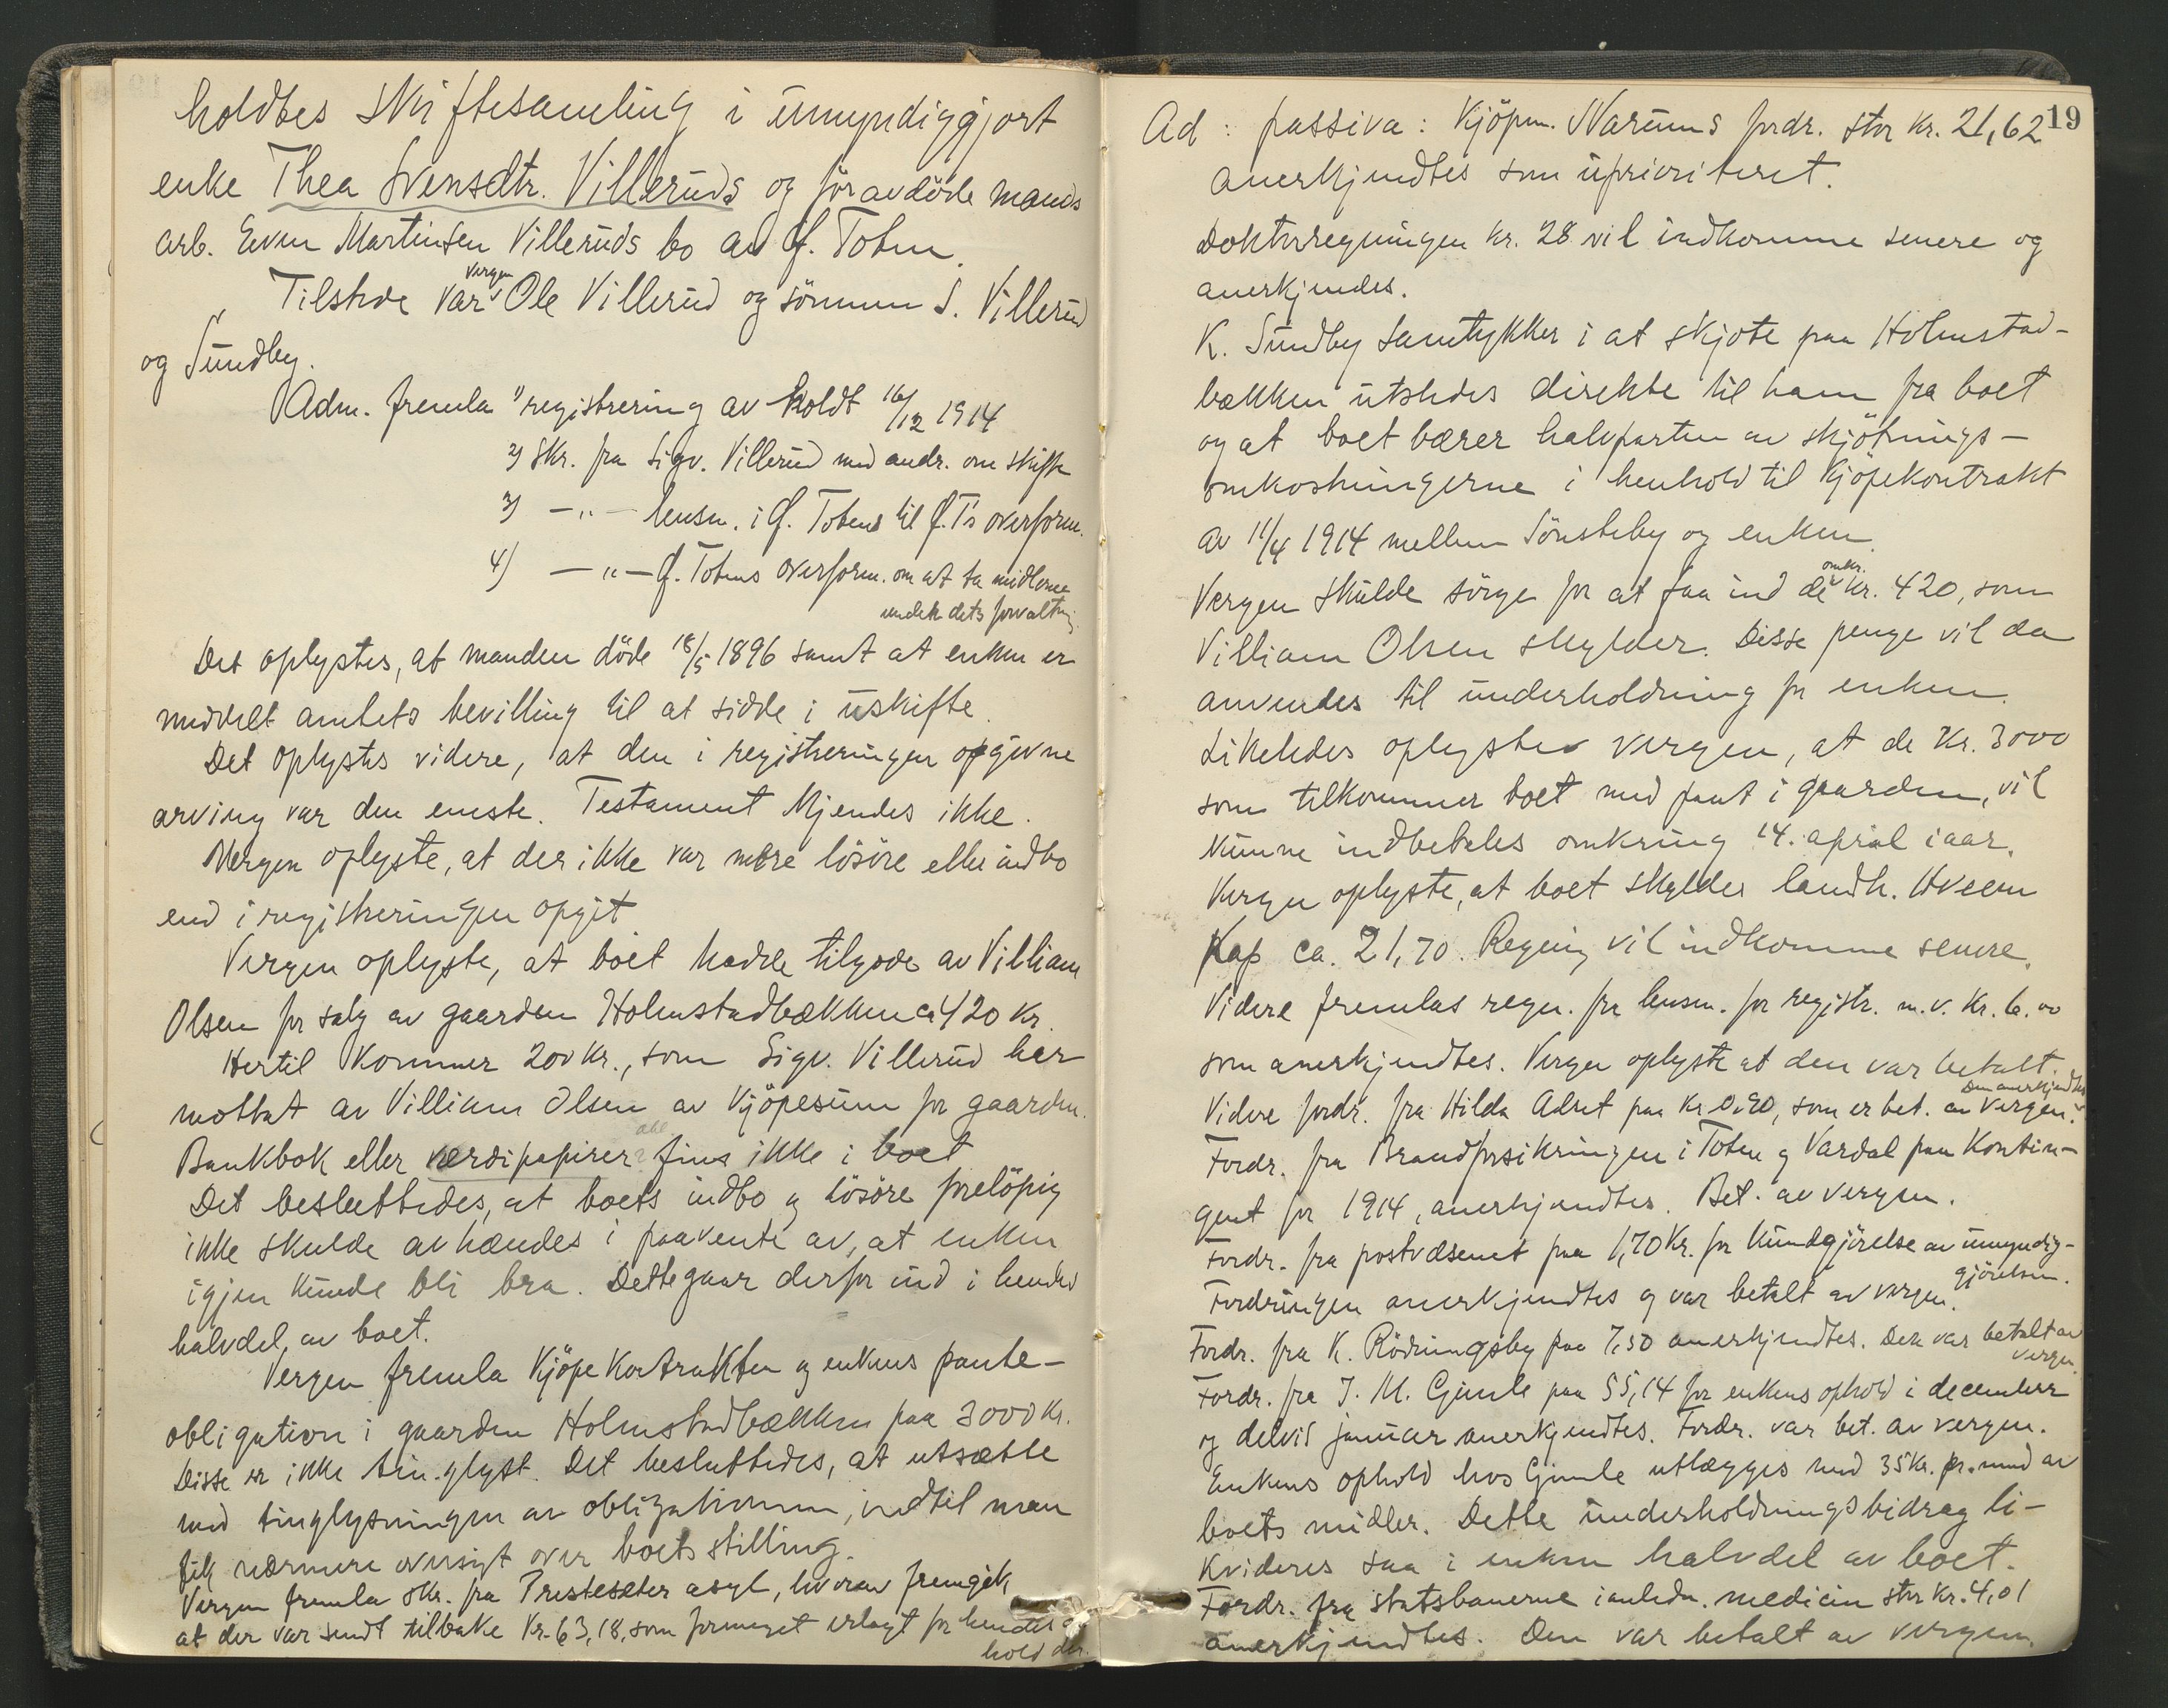 holdtes skiftesamling i umyndiggjort
enke Thea Svensdtr. Villeruds og før avdöde mands
arb. Even Martinsen Villeruds bo av Ø. Toten.
Tilstede var vergen Ole Villerud og sönnen S. Villerud
og Sundby.
Adm. fremla 1) registrering av holdt 16/12 1914
2) Skr. fra Sigv. Villerud med andr. om skifte
3) —„— lensm. i Ø. Totens til Ø. T's overform.
4) —„— Ø. Totens overform. om at ta midlerne
under dets forvaltn.
Det oplystes, at manden döde 18/5 1896 samt at enken er
meddelt amtets bevilling til at sidde i uskifte.
Det oplystes videre, at den i registreringen opgivne
arving var den eneste. Testament kjendes ikke.
Vergen oplyste, at der ikke var mere lösöre eller indbo
end i registreringen opgit
Vergen oplyste, at boet hadde tilgode av Villiam
Olsen for salg av gaarden Holmstadbækken ca 420 kr.
Hertil kommer 200 kr., som Sigv. Villerud har
mottat av Villiam Olsen av kjöpesum for gaarden.
Bankbok eller værdipapirer fins ikke i boet
Det besluttedes, at boets indbo og lösöre forelöpig
ikke skulde avhændes i paavente av, at enken
igjen kunde bli bra. Dette gaar derfor ind i hendes
halvdel av boet.
Vergen fremla kjöpekontrakten og enkens pante-
obligation i gaarden Holmstadbækken paa 3000 kr.
Disse er ikke tinglyst. Det besluttedes, at utsætte
med tinglysningen av obligationen, indtil man
fik nærmere oversigt over boets stilling.
Vergen fremla skr. fra Presteseter asyl, hvorav fremgik
at der var sendt tilbake kr. 63,18, som formeget erlagt for hendes op-
hold der.
19
Ad: passiva: Kjöpm. Narums fordr. stor kr. 21,62
anerkjendtes som uprioritert.
Doktorregningen kr. 28 vil indkomme senere og
anerkjendes.
K. Sundby samtykker i at skjöte paa Holmstad-
bækken utstedes direkte til ham fra boet
og at boet bærer halvparten av skjötnings-
omkostningerne i henhold til kjöpekontrakt
av 11/4 1914 mellem Sönsteby og enken.
Vergen skulde sörge for at faa ind de omkr. kr. 420, som
Villiam Olsen skylder. Disse penge vil da
anvendes til underholdning for enken.
Likeledes oplyste vergen, at de kr. 3000
som tilkommer boet med pant i gaarden, vil
kunne indbetales omkring 14. april i aar.
Vergen oplyste, at boet skylder landh. Hveem
Kap ca. 21,70. Regning vil indkomme senere.
Videre fremlas regn. fra lensm. for registr. m.v. kr. 6.00
som anerkjendtes. Vergen oplyste at den var betalt.
Videre fordr. fra Hilda Adset paa kr 0.90, som er bet. av vergen. Den anerkjendtes
Fordr. fra Brandforsikringen i Toten og Vardal paa kontin-
gent for 1914, anerkjendtes. Bet. av vergen.
Fordr. fra postvæsenet paa 1,70 kr. for kundgjörelse av umyndig-
gjörelsen.
Fordringen anerkjendtes og var betalt av vergen.
Fordr. fra K. Rödningsby paa 7,50 anerkjendtes. Den var betalt av
vergen.
Fordr. fra J. M. Gimle paa 55,14 for enkens ophold i december
og delvis januar anerkjendtes. Fordr. var bet. av vergen.
Enkens ophold hos Gimle utlægges med 35 kr. pr. mnd av
boets midler. Dette underholdningsbidrag li-
kvideres saa i enkens halvdel av boet.
Fordr. fra statsbanerne i anledn. medicin stor kr. 4,01
anerkjendtes. Den var betalt av vergen.